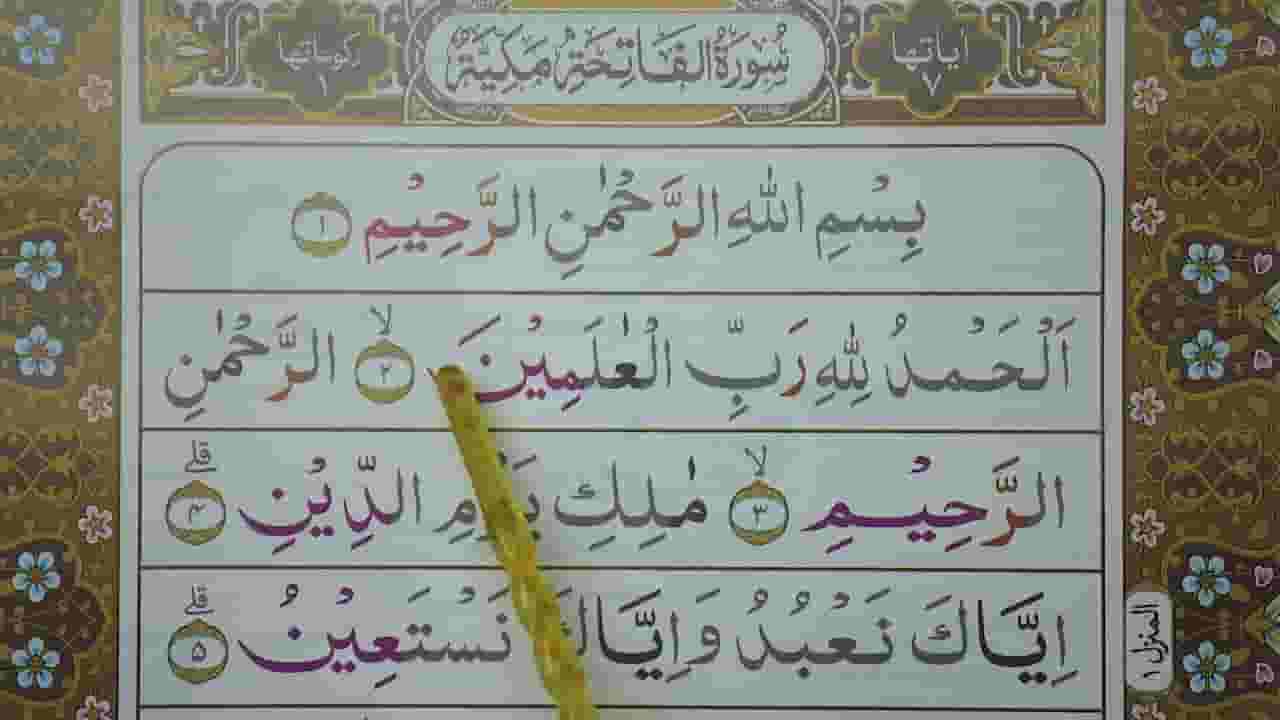 اٰیاتها ٧
سُوْرَةُ الْفَاتِحَةِ مَكِّيَّةٌ
رکوعاتها ١
بِسْمِ اللّٰهِ الرَّحْمٰنِ الرَّحِيْمِ ١
اَلْحَمْدُ لِلّٰهِ رَبِّ الْعٰلَمِيْنَ ۙ ٢ الرَّحْمٰنِ
الرَّحِيْمِ ۙ ٣ مٰلِكِ يَوْمِ الدِّيْنِ ؕ ٤
اِيَّاكَ نَعْبُدُ وَاِيَّاكَ نَسْتَعِيْنُ ؕ ٥
المنزل ١